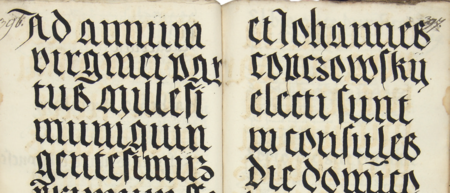 Ad annum
virginei par
tus millesi
mumquin
gentesimũz
et Johannes
electi sunt
in consules
Die domĩco